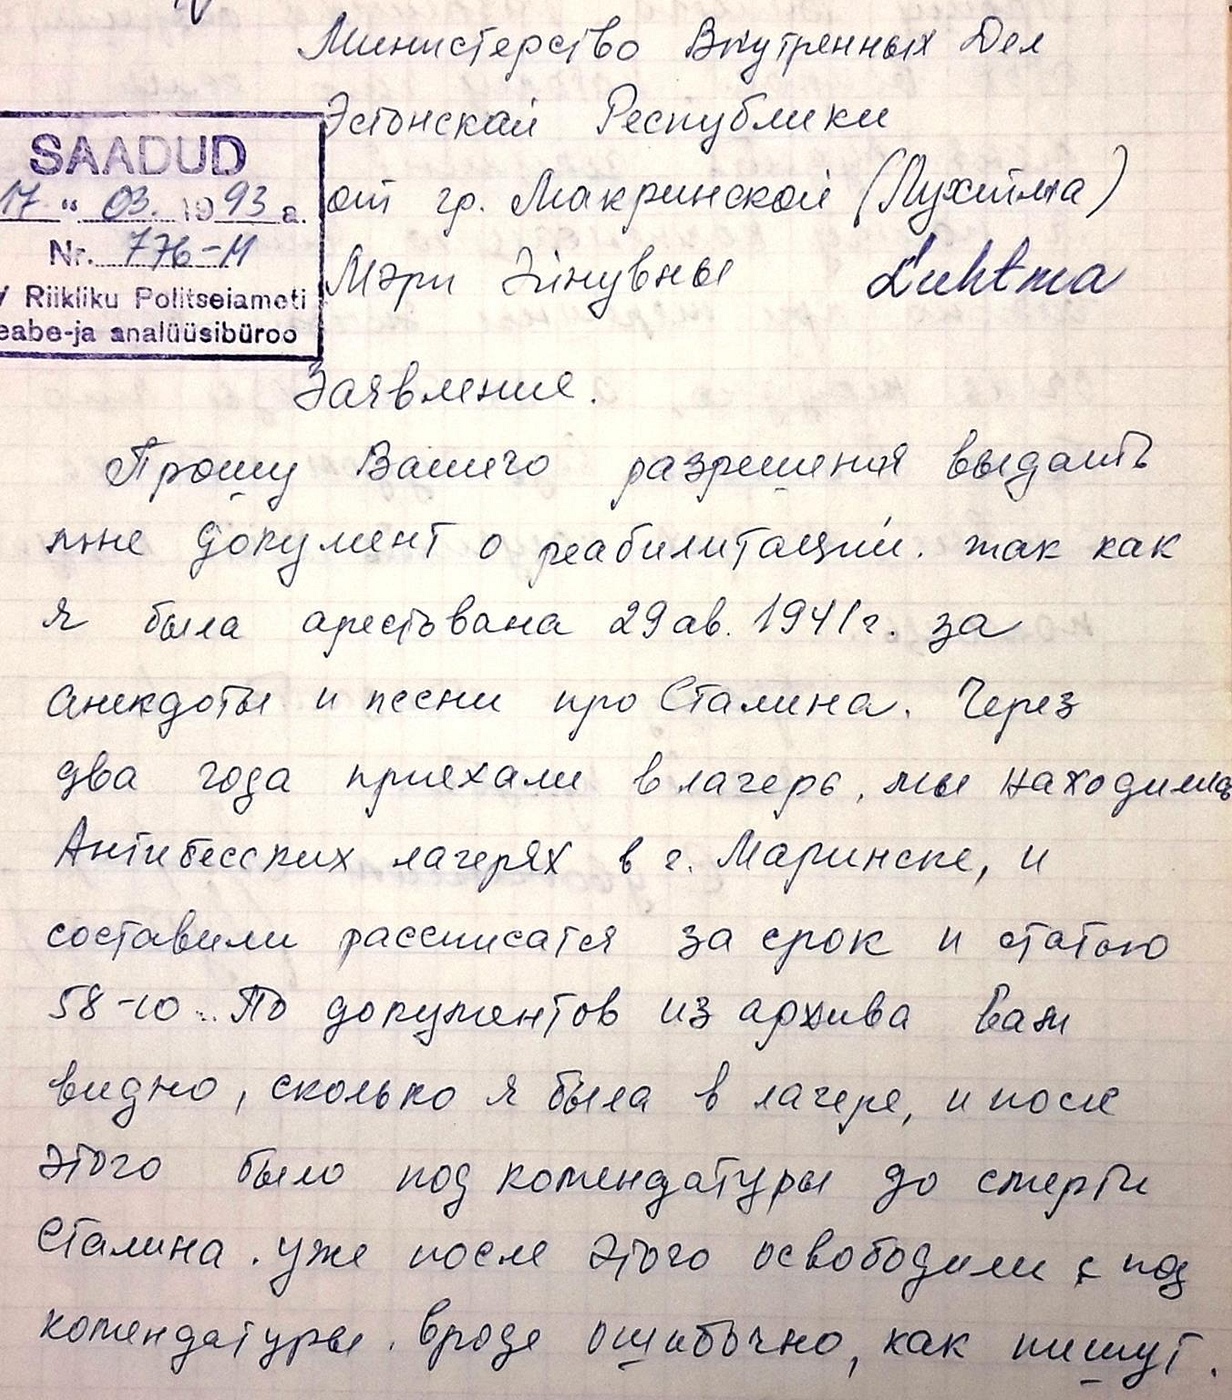 Министерство Внутренных Дел
Эстонской Республики
SAADUD
17 " 03. 1993 a.
Nr. 776-M
V Riikliku Politseiameti
eabe-ja analüüsibüroo
от гр. Макринской (Лухтма)
Мэри Яанувны Luhtma
Заявление.
Прошу Вашего разрешения выдать
мне документ о реабилитации. так как
я была арестована 29 ав. 1941 г. за
анекдоты и песни про Сталина. Через
два года приехали в лагерь, мы находились
Антибесских лагерях в г. Маринске, и
составили рассписатся за срок и статью
58-10.. По документов из архива Вам
видно, сколько я была в лагере, и после
этого было под комендатуры до смерти
Сталина. уже после этого освободили с под
комендатуры. вроде ошибочно, как пишут.